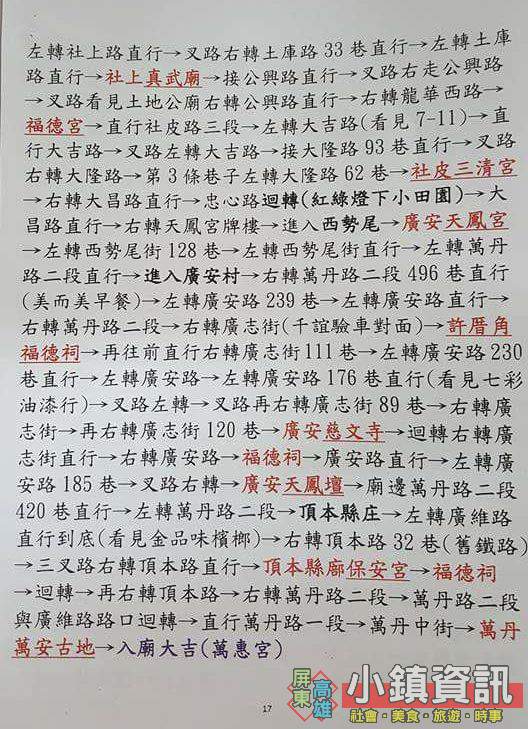 左轉社上路直行→叉路右轉土庫路 33 巷直行→左轉土庫
路直行→社上真武廟→接公興路直行→叉路右走公興路
→叉路看見土地公廟右轉公興路直行→右轉龍華西路→
福德宮→直行社皮路三段→左轉大吉路(看見 7-11)→直
行大吉路→叉路左轉大吉路→接大隆路 93 巷直行→叉路
右轉大隆路→第 3 條巷子左轉大隆路 62 巷→社皮三清宮
→右轉大昌路直行→忠心路迴轉(紅綠燈下小田園)→大
昌路直行→右轉天鳳宮牌樓→進入西勢尾→廣安天鳳宮
→左轉西勢尾街 128 巷→左轉西勢尾街直行→左轉萬丹
路二段直行→進入廣安村→右轉萬丹路二段 496 巷直行
(美而美早餐)→左轉廣安路 239 巷→左轉廣安路直行→
右轉萬丹路二段→右轉廣志街(千誼驗車對面)→許厝角
福德祠→再往前直行右轉廣志街 111 巷→左轉廣安路 230
巷直行→左轉廣安路→左轉廣安路 176 巷直行(看見七彩
油漆行)→叉路左轉→叉路再右轉廣志街 89 巷→右轉廣
志街→再右轉廣志街 120 巷→廣安慈文寺→迴轉右轉廣
志街直行→右轉廣安路→福德祠→廣安路直行→左轉廣
安路 185 巷→叉路右轉→廣安天鳳壇→廟邊萬丹路二段
420 巷直行→左轉萬丹路二段→頂本縣庄→左轉廣維路
直行到底(看見金品味檳榔)→右轉頂本路 32 巷(舊鐵路)
→三叉路右轉頂本路直行→頂本縣廍保安宮→福德祠
→迴轉→再右轉頂本路→右轉萬丹路二段→萬丹路二段
與廣維路路口迴轉→直行萬丹路一段→萬丹中街→萬丹
萬安古地→入廟大吉(萬惠宮)
17
屏東
高雄
小鎮資訊
社會・美食・旅遊・時事